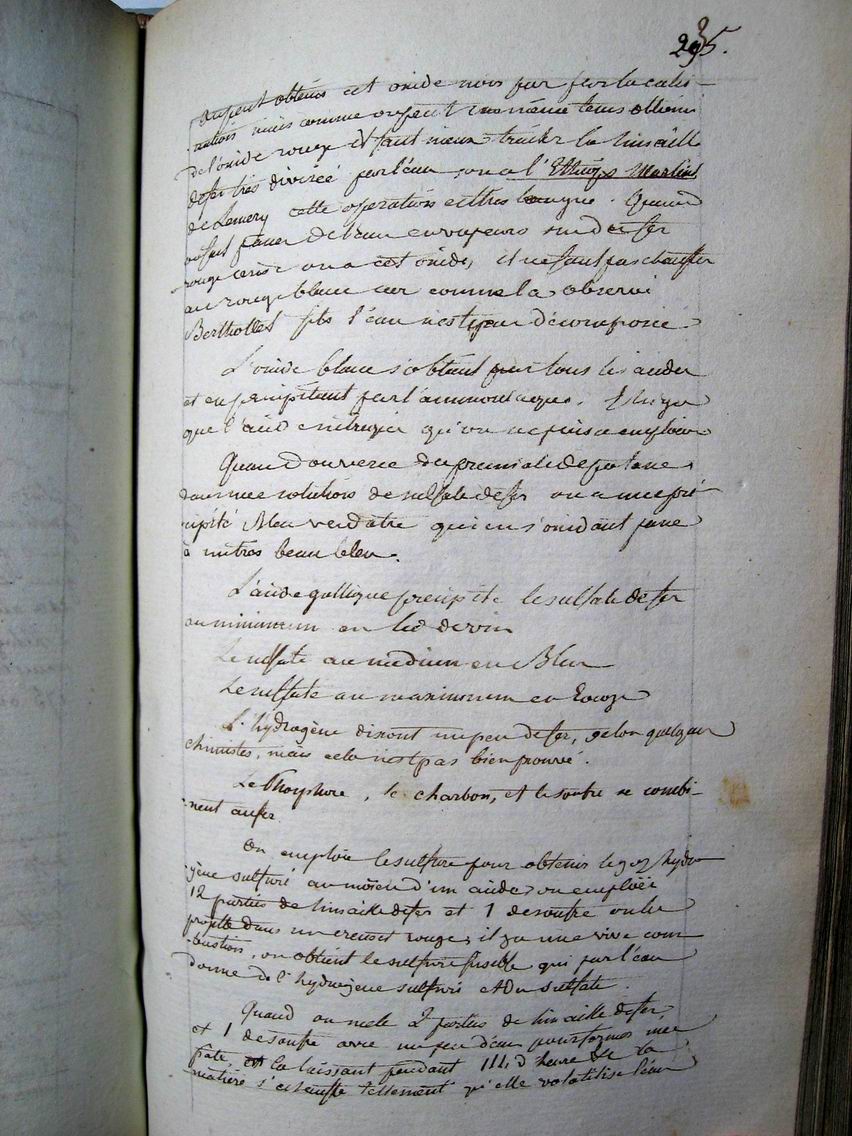 295.
on peut obtenir cet oxide noir par la calci-
nation mais comme on peut en même tems obtenir
de l'oxide rouge il faut mieux traiter la limaille
de fer très divisée par l'eau, on a l'Ethiops Martial
de Lemery cette operation est très longue. Quand
on fait passer de l'eau en vapeurs sur du fer
rouge cerise on a cet oxide, il ne faut pas chauffer
au rouge blanc car comme la observé
Berthollet fils l'eau n'est pas décomposée
L'oxide blanc s'obtient par tous les acides
et en précipitant par l'ammoniaque. Il n'y a
que l'acide nitrique qu'on ne puisse employer
Quand on verse du prussiate de potasse
dans une solution de sulfate de fer on a un pré-
cipité bleu verdatre qui en s'oxidant passe
à un très beau bleu.
L'acide gallique précipite le sulfate de fer
au minimum en lie de vin
Le sulfate au medium en Bleu
Le sulfate au maximum en Rouge
L'hydrogène dissout un peu de fer, selon quelques
chimistes, mais cela n'est pas bien prouvé.
Le Phosphore, le charbon, et le soufre se combi-
nent au fer
On emploie le sulfure pour obtenir le gaz hydro-
gène sulfuré au moien d'un acide, on emploie
12 parties de limaille de fer et 1 de soufre on le
projette dans un creuset rouge, il y a une vive com-
bustion, on obtient le sulfure fusible qui par l'eau
donne de l'hydrogene sulfuré et du sulfate.
Quand on mele 2 parties de limaille de fer,
et 1 de soufre avec un peu d'eau pour former une
pâte la laissant pendant 1/4 d'heure la
matière s'echauffe tellement qu'elle volatilise l'eau